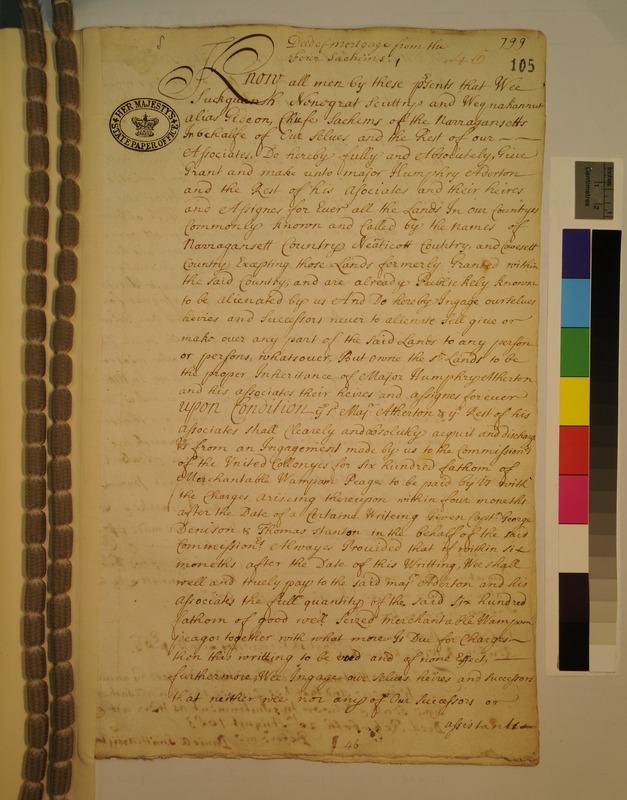 Deed of mortgage from the
four Sachims.
799
105
HER MAJESTYS STATE PAPER OFFICE
Know all men by these psents that Wee
Suckquansh Nonegrat Scuttup and Weqnakannut
alias Gideon, Chiefe Sachems of the Narragansetts
In behalfe of Our Selues and the Rest of our
Associates, Do hereby fully and Absolutely, Giue
Grant and make unto major Humphry Aderton
and the Rest of his Asociates and their heires
and Assignes for Euer all the Lands In our Countrys
Commonly known and Called by the names of
Narragansett Country Neaticott Country, and Cowesett
Country Exepting those Lands formerly Granted within
the said Country, and are already Publickely known
to be alienated by us And Do hereby Ingage ourselues
heires and Successors neuer to alienate Sell giue or
make ouer any part of the said Lands to any person
or persons, whatsouer, But owne the sd Lands to be
the proper Inheritance of Major Humphry Atherton
and his associates their heires and assignes foreuer
upon Condition yt sd Majr Atherton & ye Rest of his
associates shall Clearely and absolutly acquit and discharg
Vs from an Ingagement made by us to the Commissionrs
of the United Collonyes for Six hundred fathom of
Merchantable Wampom Peage to be paid by Vs with
the Charges Arising thereupon within four moneths
after the Date of a Certaine Writeing Given Captn George
Denison & Thomas Stanton in the behalf of the said
Commissionrs Alwayes Prouided that if within Six
moneths after the Date of this Writting, Wee shall
well and truely pay to the said majr Aderton and his
Associates the full quantity of the said Six hundred
fathom of good well Seized merchantable Wampom
peage together with what more Is Due for Charges
then this writting to be void and of none Effect,
furthermore Wee Ingage our selues heires and successors
that neither wee nor any of Our Successors or
assistants
46